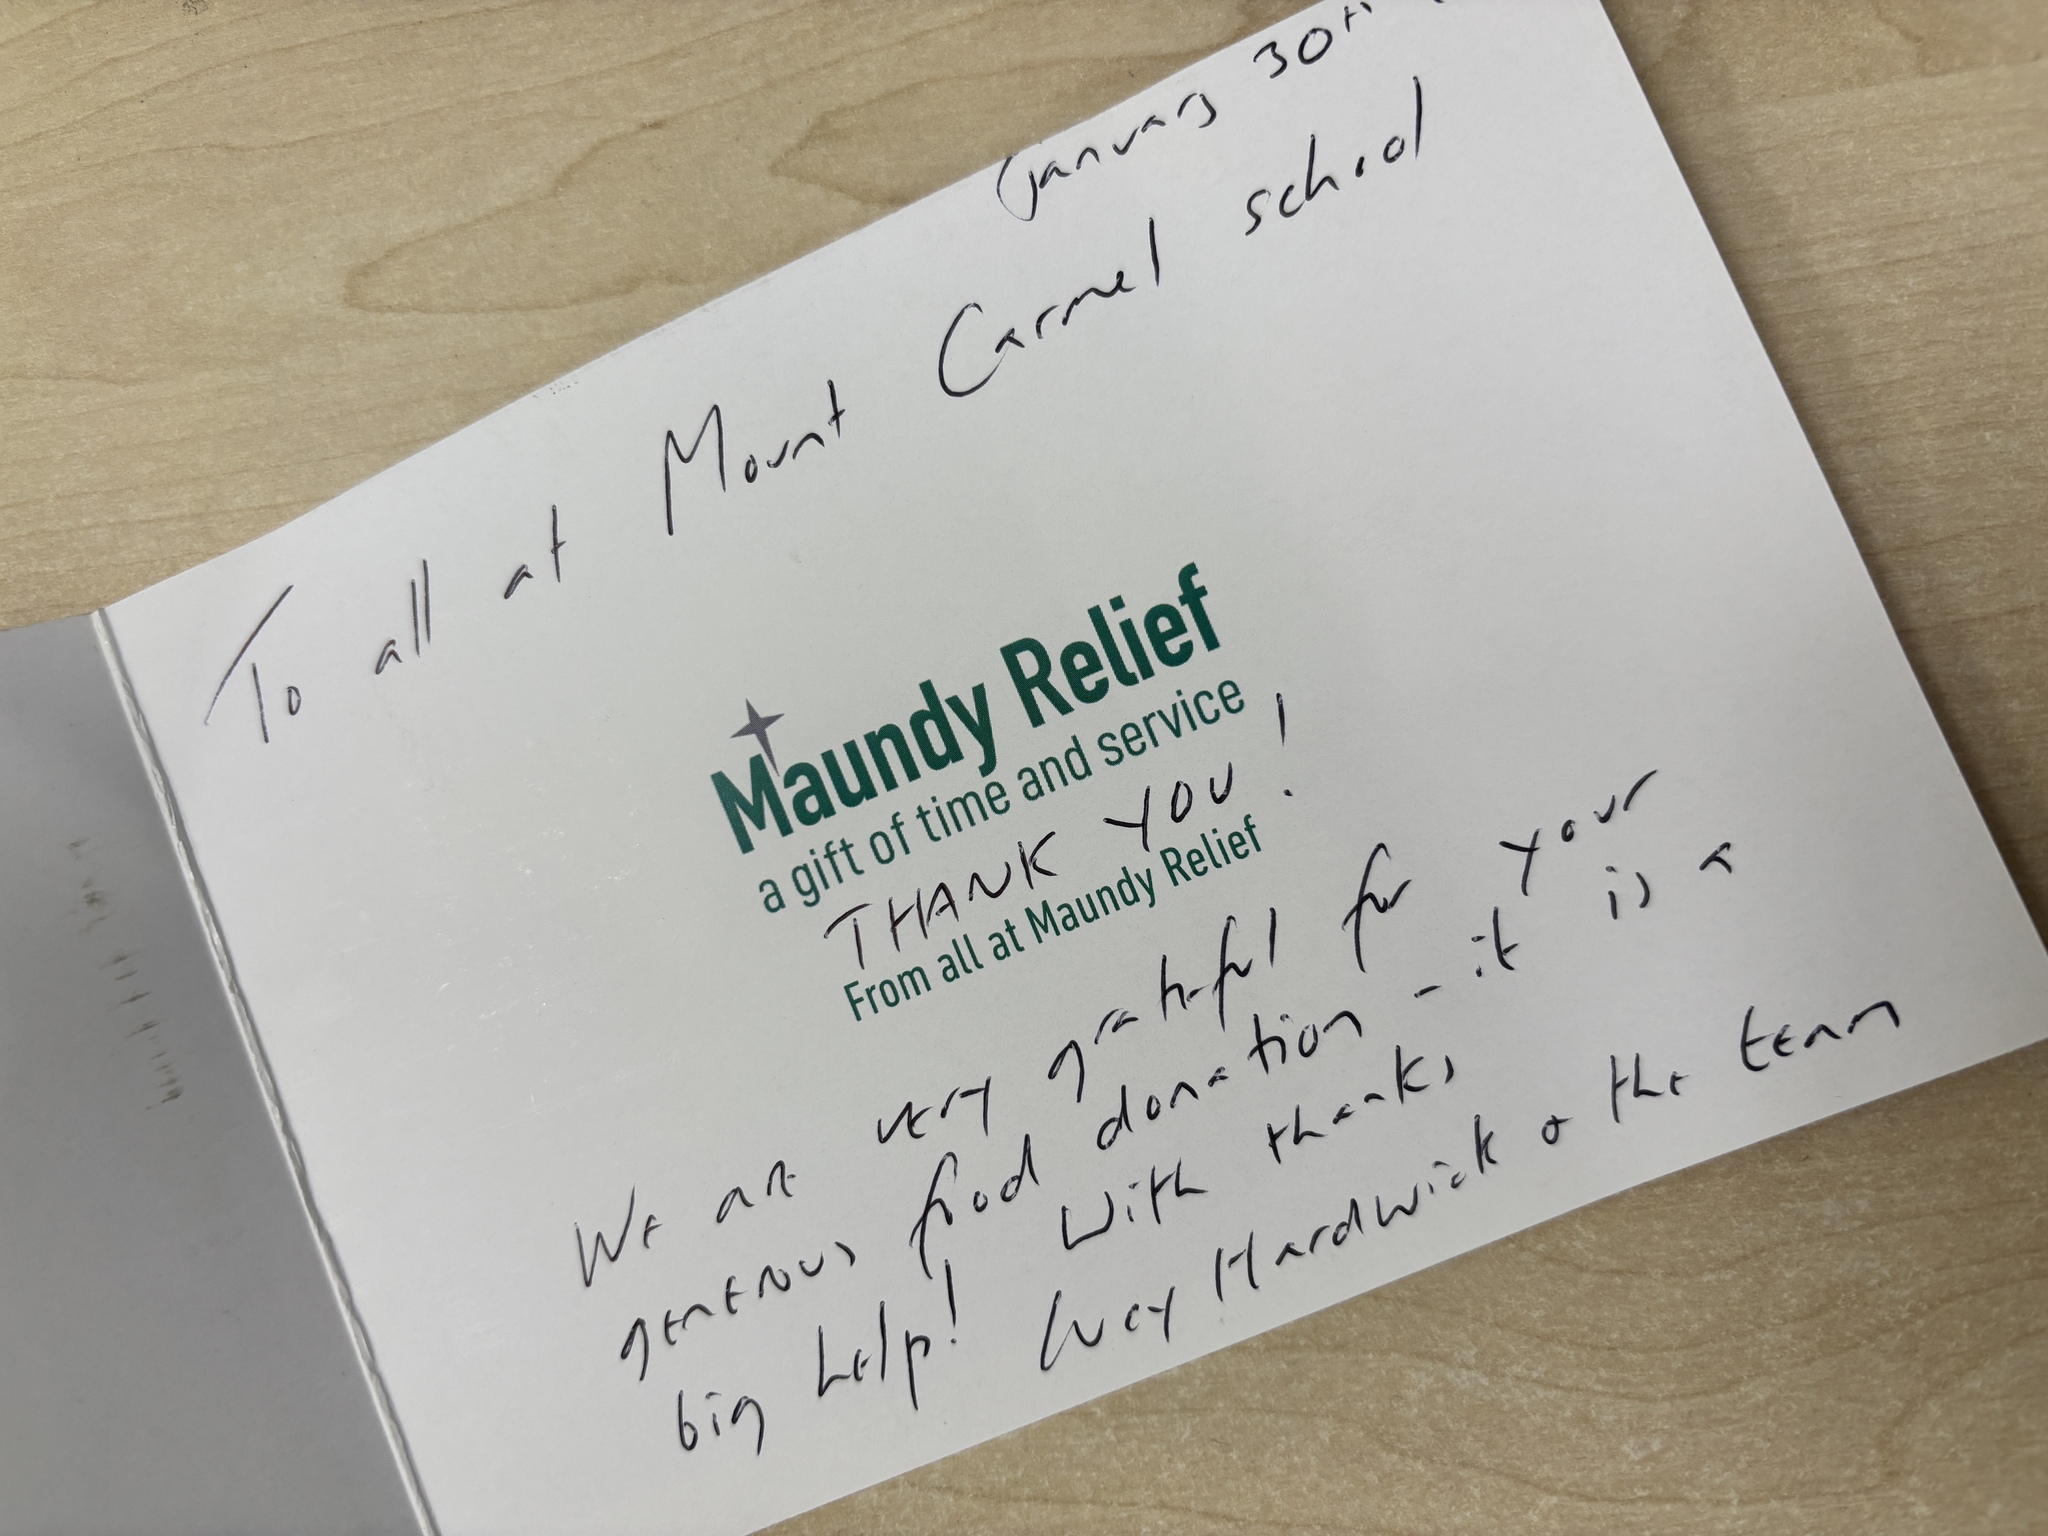 January 30th
To all at Mount Carmel school
Maundy Relief
a gift of time and service
THANK YOU!
From all at Maundy Relief
We are very grateful for your
generous food donation - it is a
big help! With thanks
Lucy Hardwick & the team